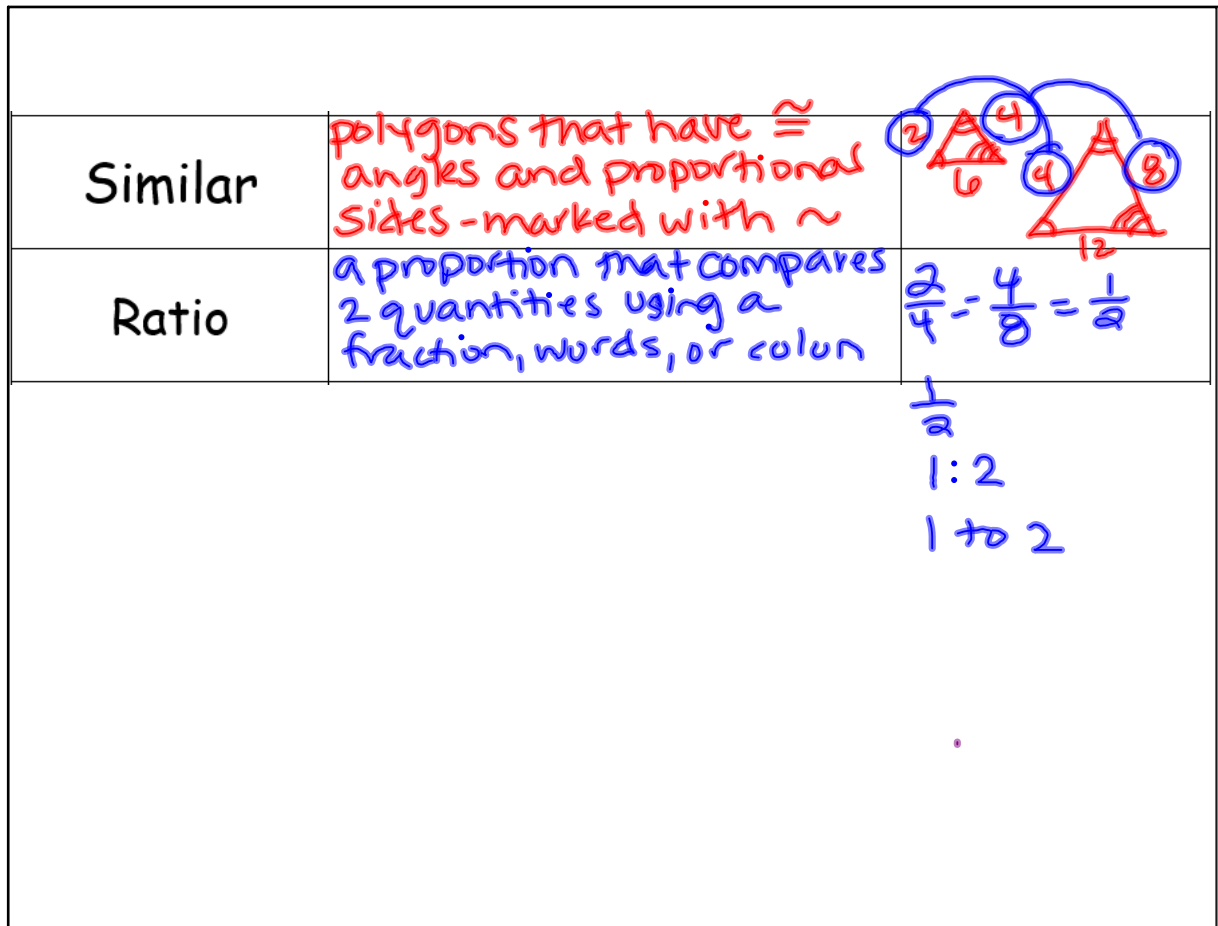 Similar
polygons that have ≅
angles and proportional
sides - marked with ~
2 4 6
4 8 12
Ratio
a proportion that compares
2 quantities using a
fraction, words, or colon
2/4 = 4/8 = 1/2
1/2
1 : 2
1 to 2